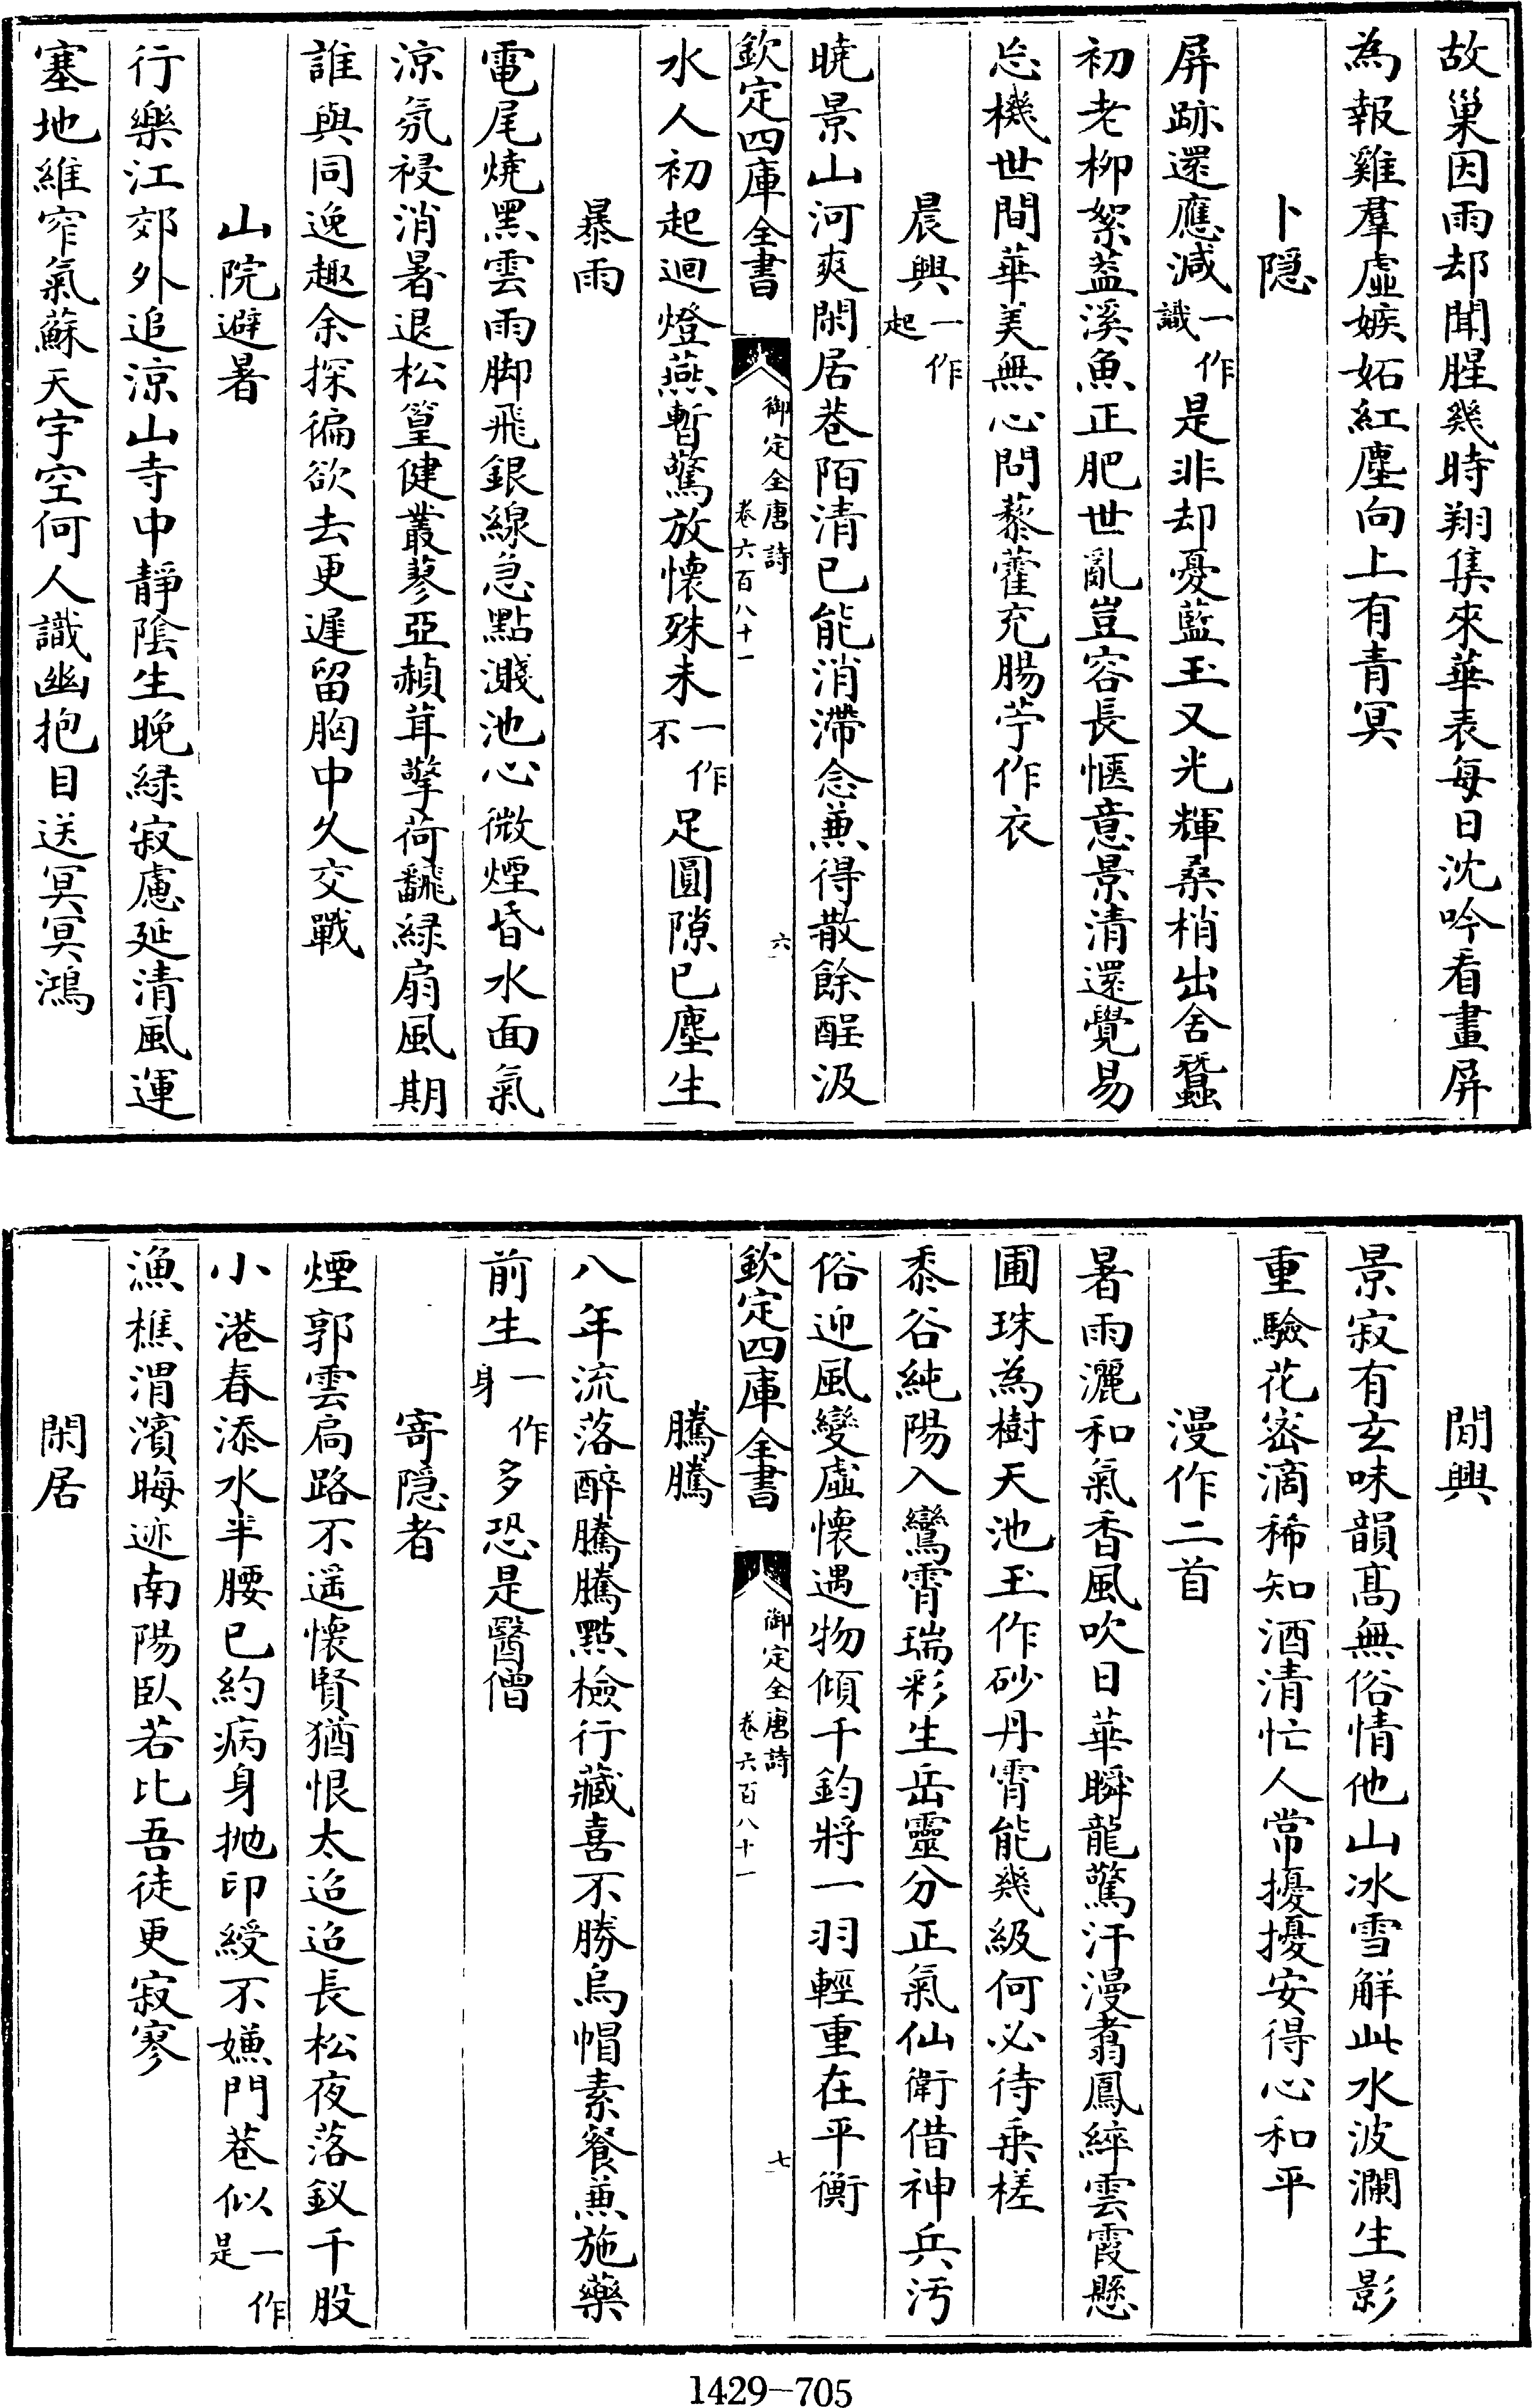 故巢因雨却聞腥幾時翔集來華表每日沈吟看畫屏
為報雞羣虛嫉妬紅塵向上有青冥
卜隠
屏跡還應減一作識是非却憂藍玉又光輝桑梢出舍蠶
初老柳絮葢溪魚正肥世亂豈容長愜意景清還覺易
忘機世間華美無心問藜藿充腸苧作衣
晨興一作起
曉景山河爽閑居巷陌清已能消滯念兼得散餘酲汲
欽定四庫全書
御定全唐詩
卷六百八十一
六
水人初起迴燈燕暫驚放懷殊未一作不足圓隙已塵生
暴雨
電尾燒黑雲雨脚飛銀線急點濺池心微煙昏水面氣
涼氛祲消暑退松篁健叢蓼亞赬茸擎荷飜綠扇風期
誰與同逸趣余探徧欲去更遲留胸中久交戰
山院避暑
行樂江郊外追涼山寺中靜隂生晚綠寂慮延清風運
塞地維窄氣蘇天宇空何人識幽抱目送冥冥鴻
閒興
景寂有玄味韻髙無俗情他山冰雪解此水波瀾生影
重驗花宻滴稀知酒清忙人常擾擾安得心和平
漫作二首
暑雨灑和氣香風吹日華瞬龍驚汗漫翥鳳綷雲霞懸
圃珠為樹天池玉作砂丹霄能幾級何必待乗槎
黍谷純陽入鸞霄瑞彩生岳靈分正氣仙衛借神兵污
俗迎風變虛懷遇物傾千鈞將一羽輕重在平衡
欽定四庫全書
御定全唐詩
卷六百八十一
七
騰騰
八年流落醉騰騰點檢行藏喜不勝烏帽素餐兼施藥
前生一作身多恐是醫僧
寄隠者
煙郭雲扃路不遥懷賢猶恨太迢迢長松夜落釵千股
小港春添水半腰已約病身抛印綬不嫌門巷似一作是
漁樵渭濱晦迹南陽臥若比吾徒更寂寥
閑居
1429—705